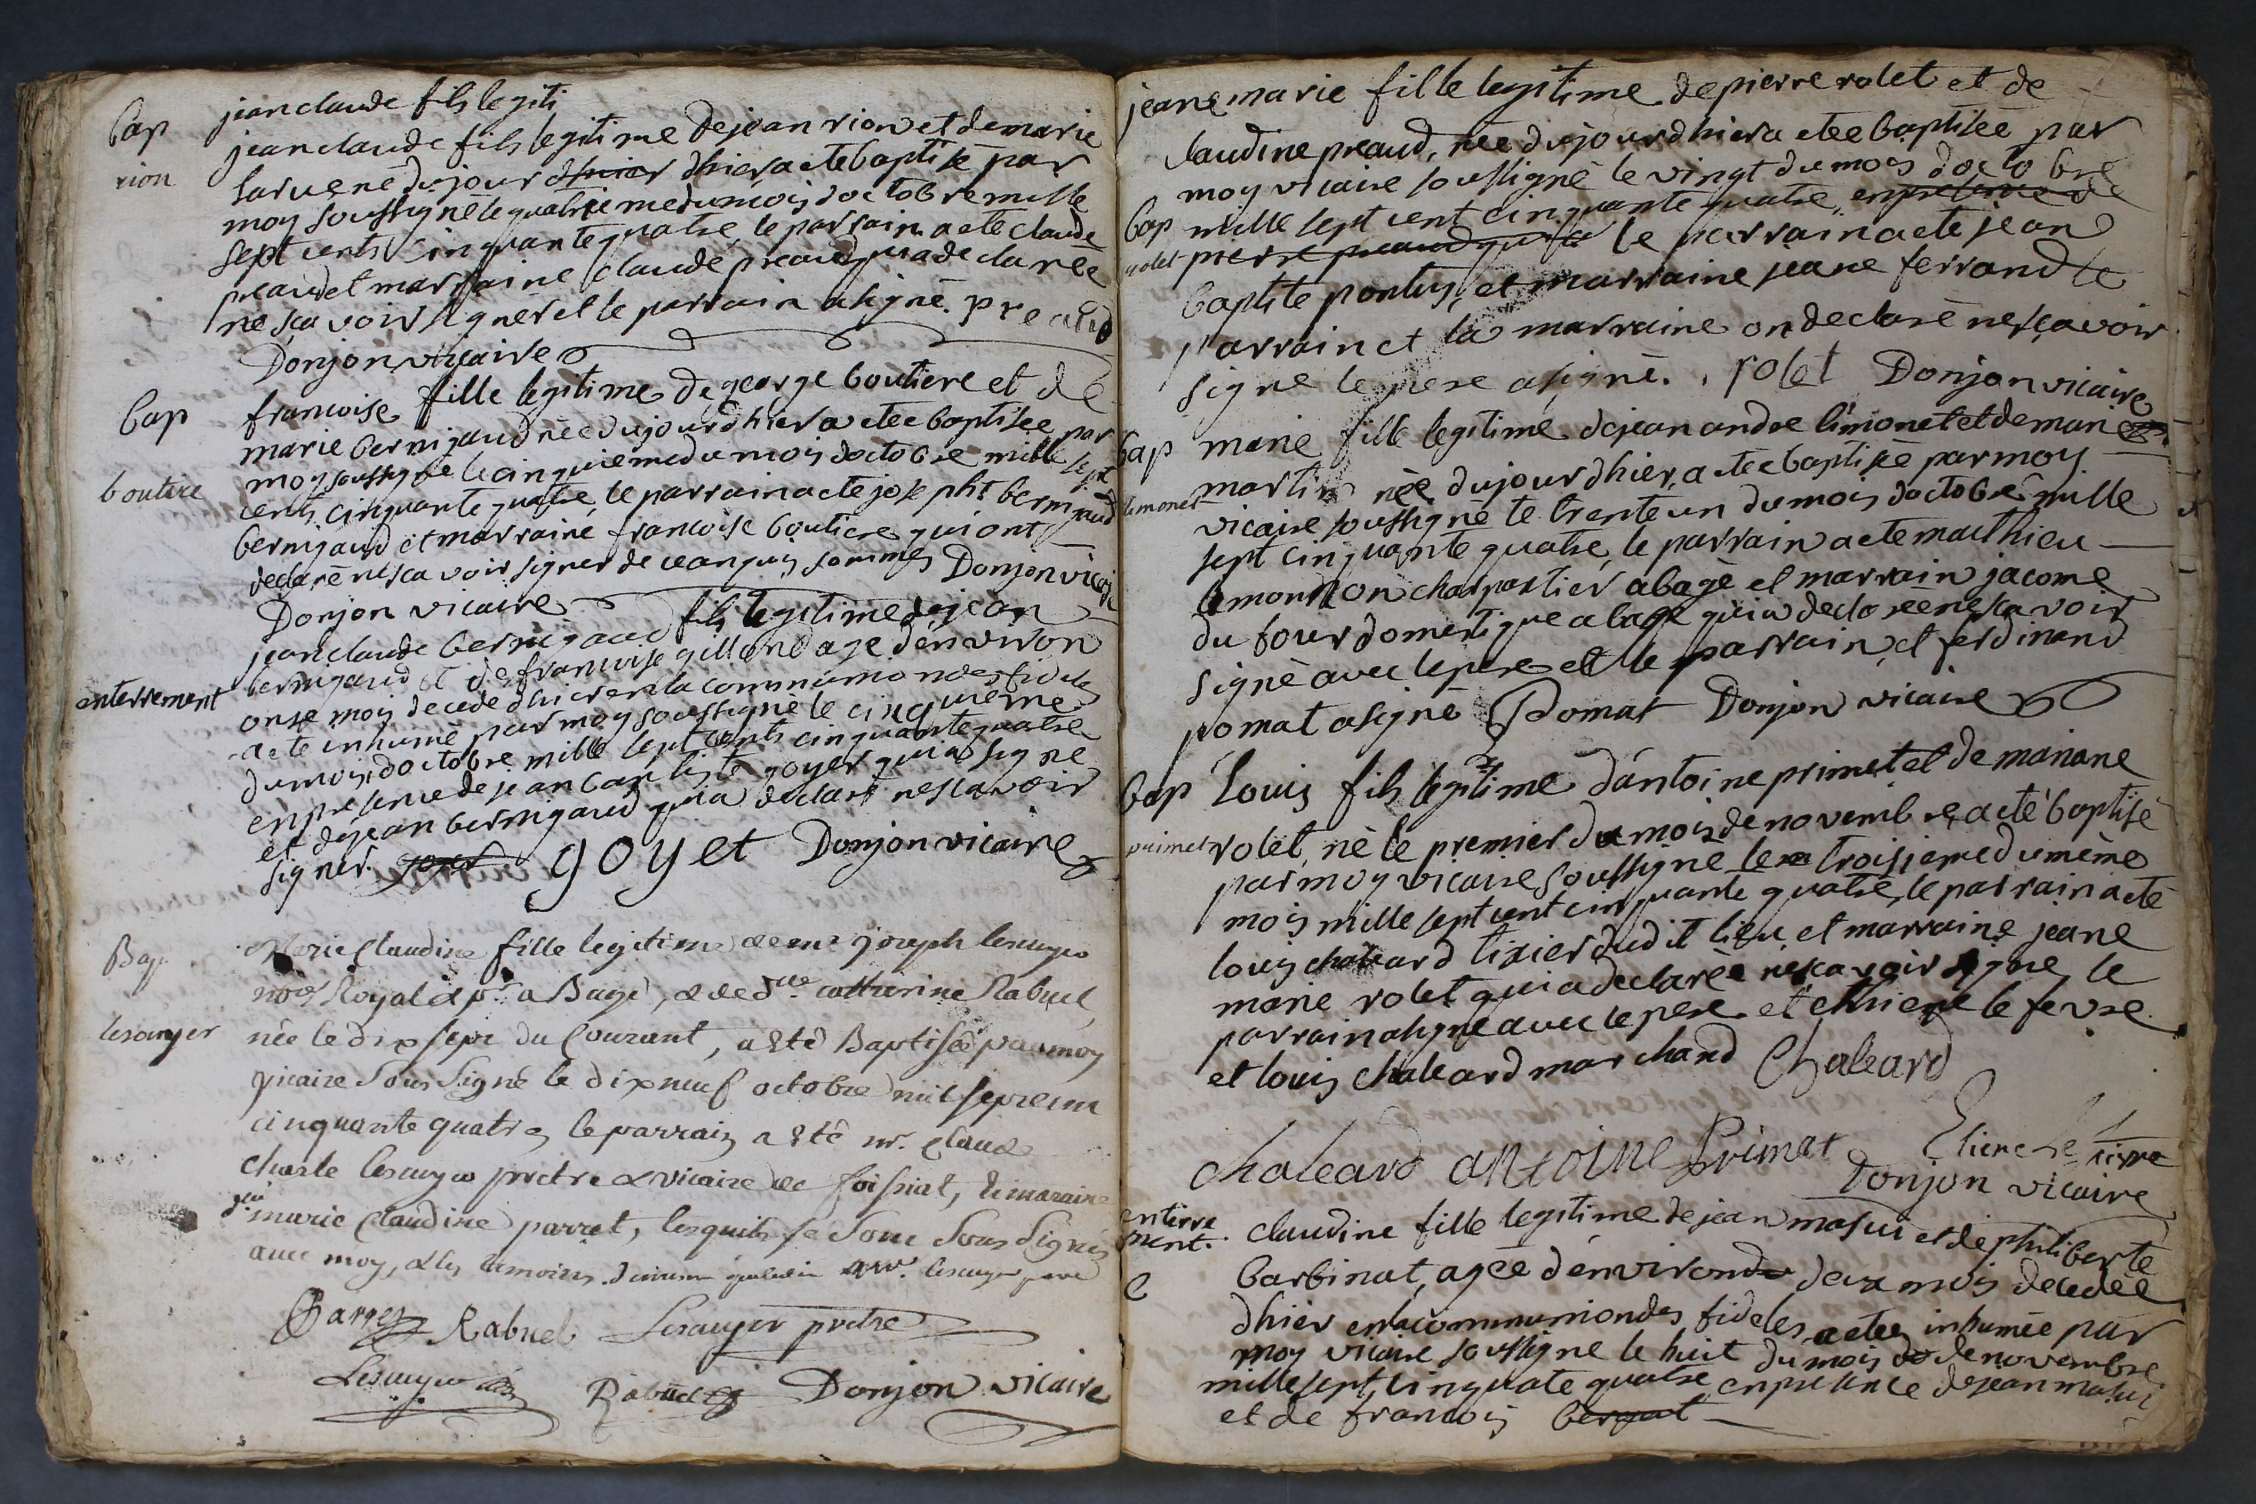 jean claude fils legiti
Bap jean claude fils legitime de jean rion et de marie
rion larue né du jour dhier dhier a ete baptisé par
moy soussigné le quatrieme du mois doctobre mille
sept cents cinquante quatre, le parrain a ete claude
preaud et marraine claude preaud qui a declarée
ne scavoir signer et le parrain a signé. preaud
Donjon vicaire
Bap francoise fille legitime de george boutiere et de
marie bernigaud née du jourdhier a etee baptisee par
boutire moy soussigné le cinquieme du mois doctobre mille sept
cents cinquante quatre, le parrain a ete joseph bernigaud
bernigaud et marraine francoise boutiere qui ont
declaré ne sca voir signer de ce anquis sommes Donjon vicaire
Donjon vicaire
jean claude bernigaud fils legitime de jean
enterrement bernigaud et de francoise gilland age d'environ
onse mois decedé dhier en la communion des fideles
a ete inhumé par moy soussigné le cinquieme
du mois doctobre mille sept cents cinquante quatre
en presence de jean baptiste goyet qui a signe
et de jean bernigaud qui a declaré ne scavoir
signer. goyet goyet Donjon vicaire
Bap. Marie Claudine fille legitime de me joseph lescuyer
nore Royal & pr a Bagé, & de dlle catherine Rabuel,
lescuyer née le dix sept du Courant, a été Baptisée par moy
vicaire Sous Signé le dix neuf octobre mil sept cent
cinquante quatre, le parrain a été mr. Claude
charle lescuyer pretre & vicaire de foissiat, & la maraine
marie Claudine parret, lesquels se Sont Sous Signés
avec moy, & les temoins. lescuyer pere
Rabuel Lescuyer pretre
Lescuyer Rabuel Donjon vicaire
jeane marie fille legitime de pierre rolet et de
claudine preaud, née du jourdhier a etee baptisée par
moy vicaire soussigné le vingt du mois doctobre
Bap mille sept cent cinquante quatre, en presence de
rolet pierre preaud qui a le parrain a ete jean
baptiste pontus, et marraine jeane ferrand le
parrain et la marraine on declaré ne scavoir
signe le pere a signé. rolet Donjon vicaire
Bap marie fille legitime de jean andre limonet et de marie
limonet martin née du jourdhier, a etee baptisée par moy
vicaire soussigné le trente un du mois doctobre mille
sept cinquante quatre, le parrain a ete mathieu
charpantier a bagé et marrain jacome
du four domestique a bagé qui a declarée ne scavoir
signé avec le pere et le parrain, et ferdinand
pomat a signé Pomat Donjon vicaire
Bap Louis fils legitime d'antoine primet et de mariane
primet rolet, né le premier du mois de novembre, a eté baptisé
par moy vicaire soussigné le troisieme du même
mois mille sept cent cinquante quatre, le parrain a eté
louis chaleard tixier dudit lieu et marraine jeane
marie rolet qui a declarée ne sca voir signe, le
parrain a signé avec le pere et ethiene le fevre
et louis chaleard marchand Chaleard
chaleard antoine Primet Etiene Le fevre
Donjon vicaire
entirre
ment. claudine fille legitime de jean masui et de philiberte
barbinat, agée d'environ deux mois decedée
dhier en la communion des fideles, a etee inhumée par
moy vicaire soussigné le huit du mois de novembre
mille sept cinquate quatre en presence de jean masui
et de francois bernat